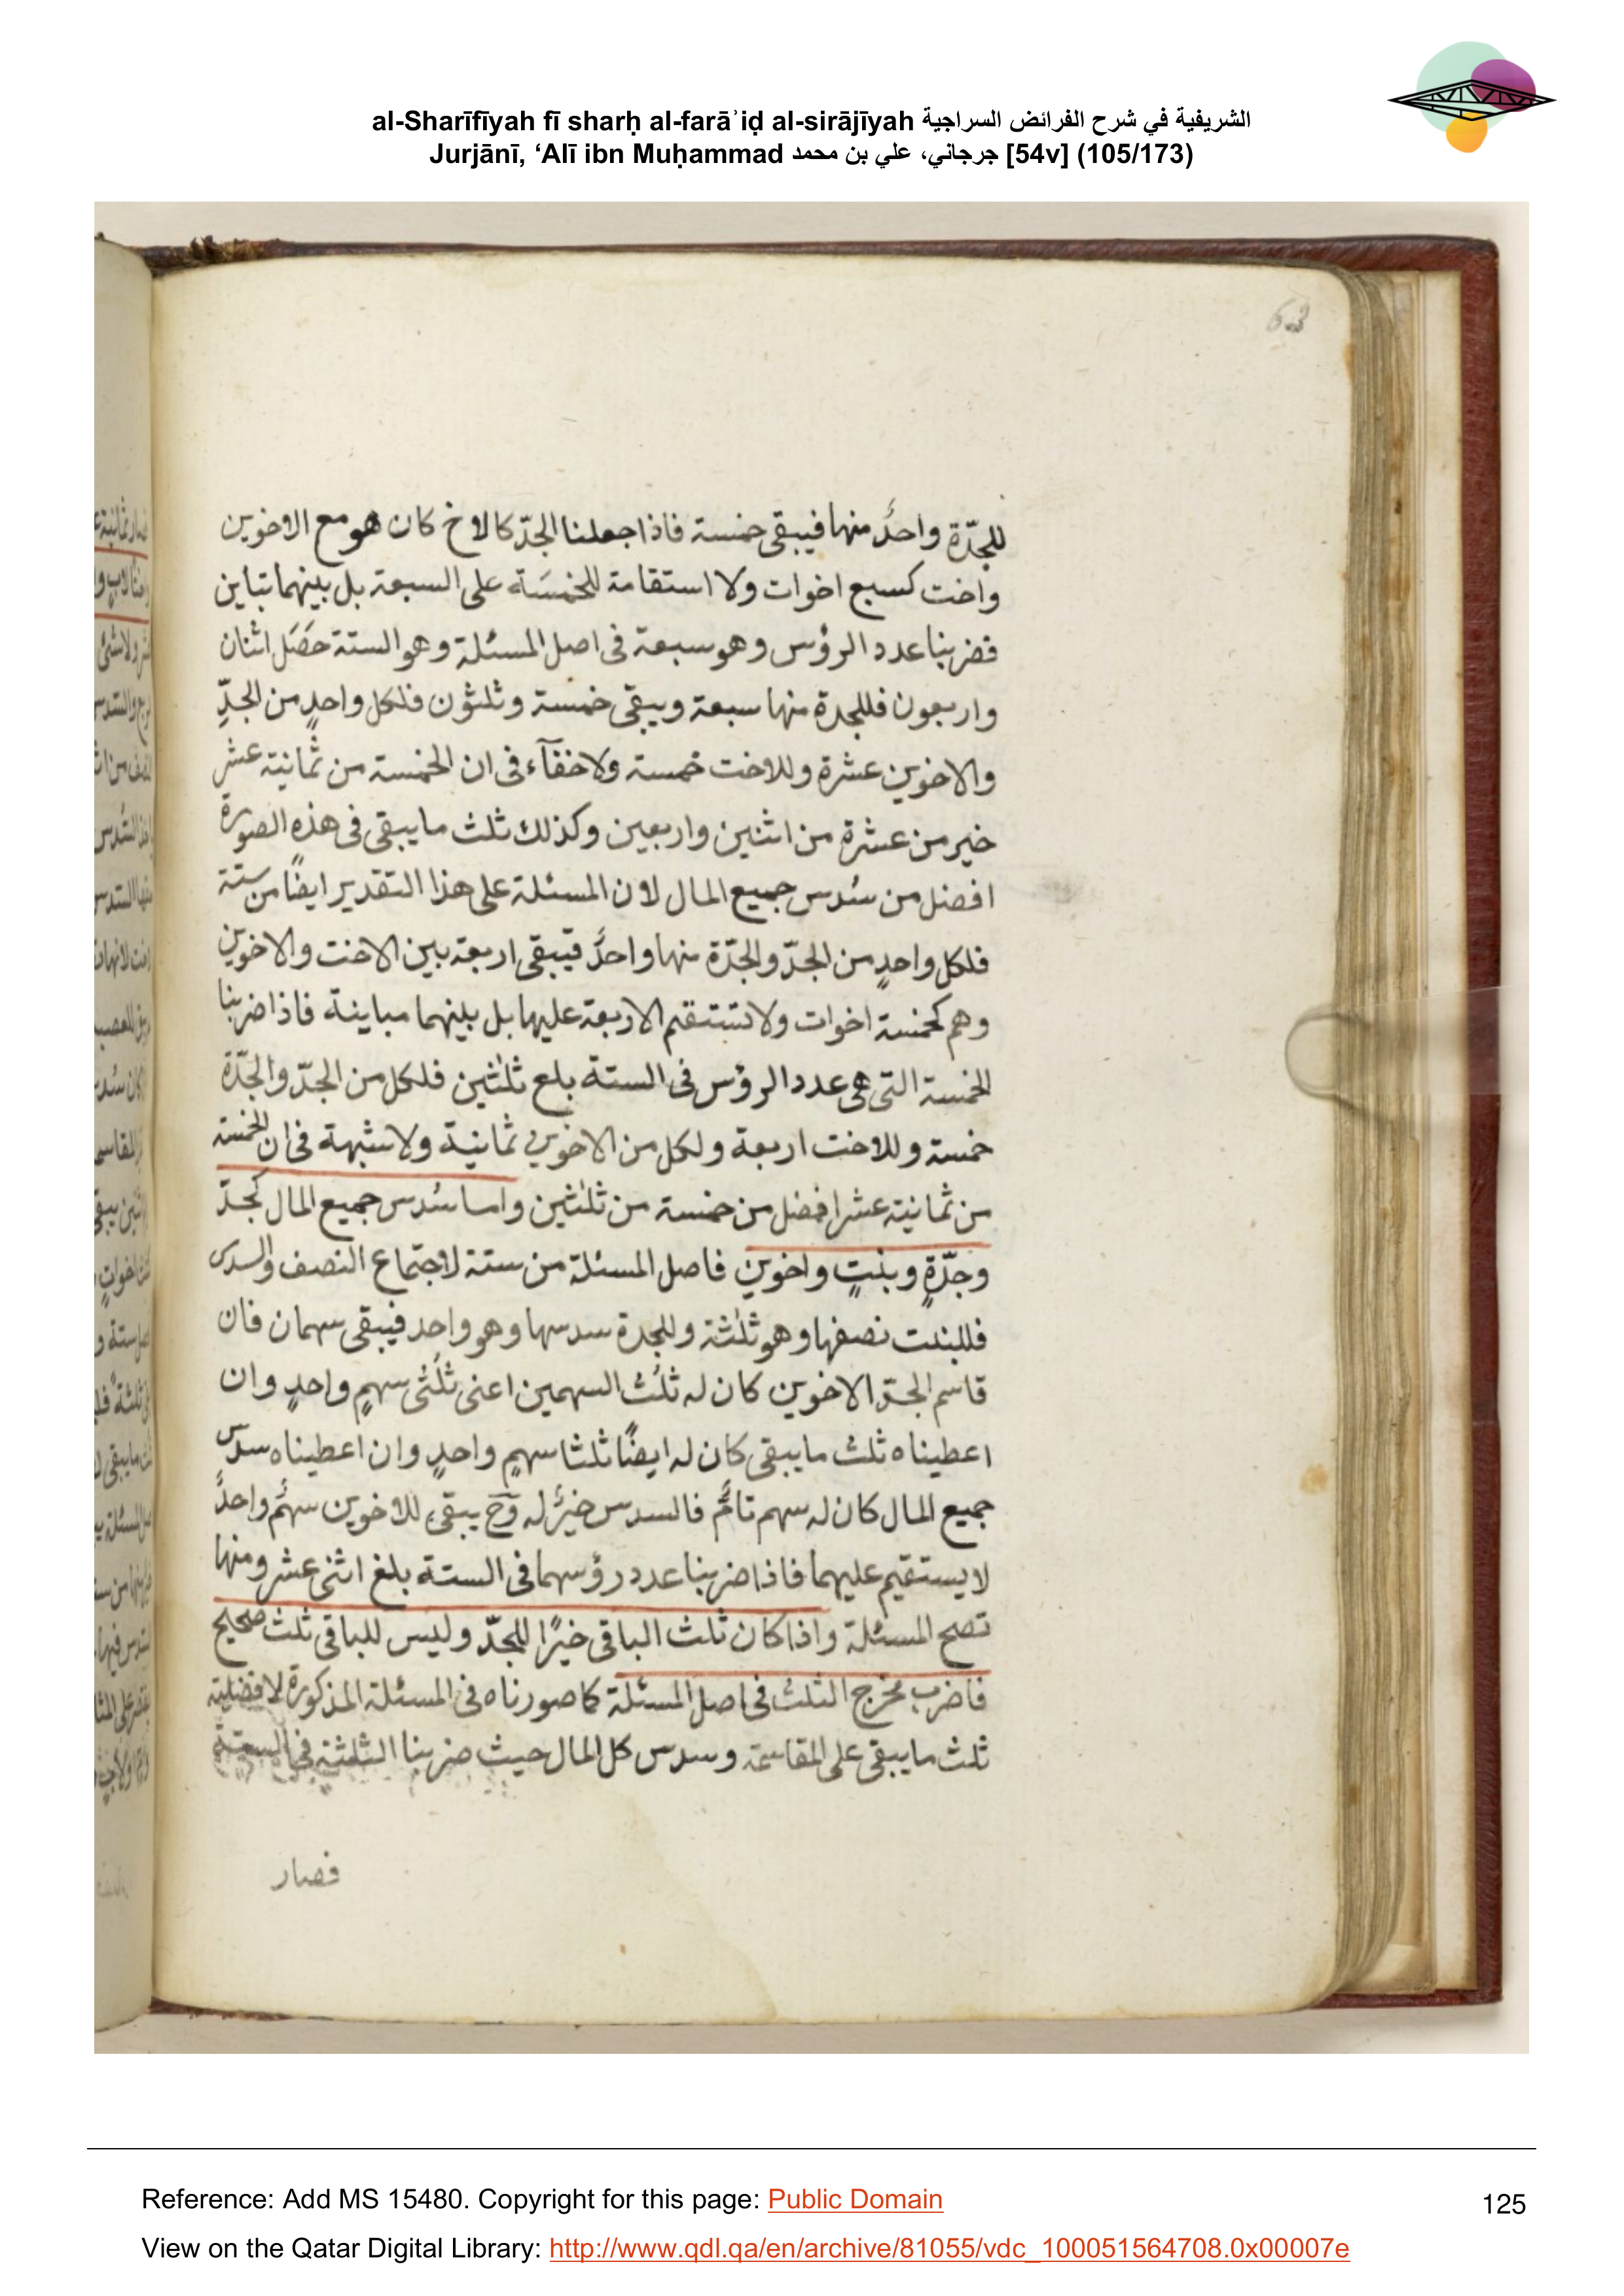 al-Sharīfīyah fī sharḥ al-farāʾiḍ al-sirājīyah الشريفية في شرح الفرائض السراجية
Jurjānī, ‘Alī ibn Muḥammad جرجاني، علي بن محمد [54v] (105/173)
63
للجدّة واحدٌ منها فيبقى خمسة فاذا جعلنا الجدّ كالاخ كان هو مع الاخوين
واخت كسبع اخوات ولا استقامة للخمسَة على السبعة بل بينهما تباين
فضربنا عدد الرؤس وهو سبعة فى اصل المسئلة وهو الستة حَصَل اثنان
واربعون فللجدة منها سبعة ويبقى خمسة وثلثون فلكل واحدٍ من الجدِّ
والاخوين عشرة وللاخت خمسة ولا خفآء فى ان الخمسة من ثمانية عشر
خير من عشرة من اثنين واربعين وكذلك ثلث ما يبقى فى هذه الصورة
افضل من سُدس جميع المال لان المسئلة على هذا التقدير ايضًا من ستة
فلكل واحدٍ من الجدّ والجدّة منها واحدٌ فيبقى اربعة بين الاخت والاخوين
وهم كخمسة اخوات ولا تستقيم الاربعة عليها بل بينهما مباينة فاذا ضربنا
الخمسة التى هى عدد الرؤس فى الستة بلع ثلثين فلكل من الجدّ والجدّة
خمسة وللاخت اربعة ولكل من الاخوين ثمانية ولا شبهة فى ان الخمسة
من ثمانية عشر افضل من خمسة من ثلثين واما سُدس جميع المال كجدّ
وجدّةٍ وبنتٍ واخوين فاصل المسئلة من ستة لاجتماع النصف والسدس
فللبنت نصفها وهو ثلثة وللجدة سدسها وهو واحد فيبقى سهمان فان
قاسم الجدّ الاخوين كان له ثلُث السهمين اعنى ثلُثى سهمٍ واحدٍ وان
اعطيناه ثلث ما يبقى كان له ايضًا ثلثا سهمٍ واحدٍ وان اعطيناه سدس
جميع المال كان له سهم تامٌّ فالسدس خيرٌ له وح يبقى للاخوين سهمٌ واحدٌ
لا يستقيم عليهما فاذا ضربنا عدد رؤسهما فى الستة بلغ اثنى عشر ومنها
تصح المسئلة واذا كان ثلث الباقى خيرًا للجدّ وليس للباقى ثلث صحيح
فاضرب مخرج الثلث فى اصل المسئلة كما صورناه فى المسئلة المذكورة لافضلية
ثلث ما يبقى على المقاسمة وسدس كل المال حيث ضربنا الثلثة فى الستة
فصار
Reference: Add MS 15480. Copyright for this page: Public Domain
125
View on the Qatar Digital Library: http://www.qdl.qa/en/archive/81055/vdc_100051564708.0x00007e